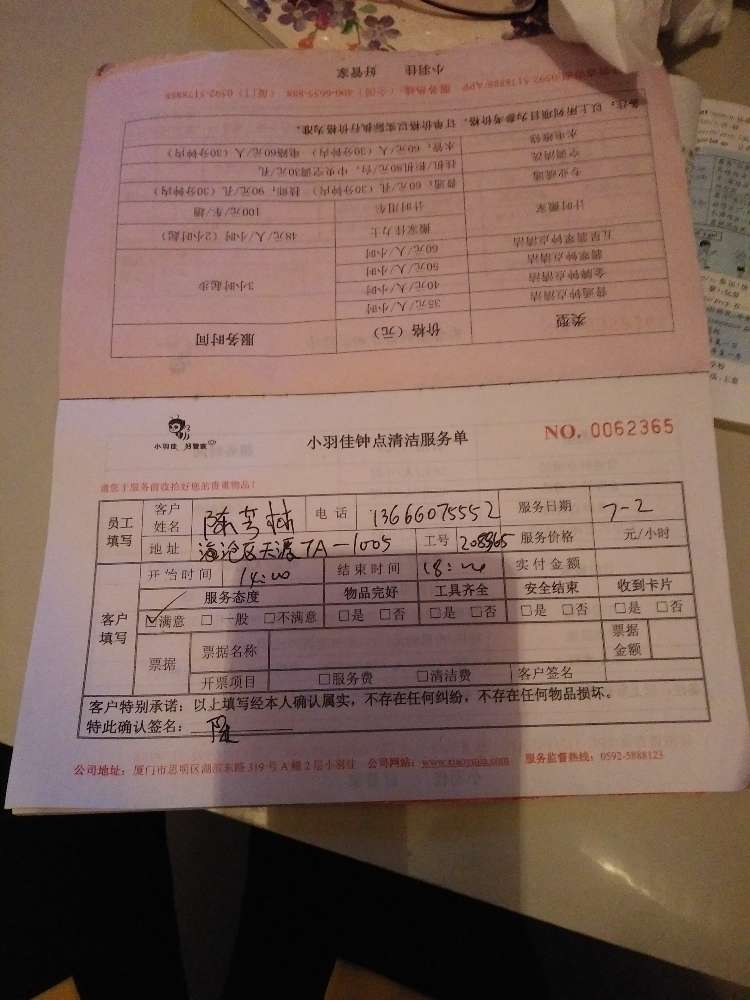 小羽佳 好管家
类型 价格（元） 服务时间
普通钟点清洁 35元/人/小时 3小时起步
金牌钟点清洁 40元/人/小时
翡翠钟点清洁 50元/人/小时
五星翡翠钟点清洁 60元/人/小时
计时搬家 搬家佳力士 48元/人/小时（2小时起）
计时用车 100元/车/趟
专业疏通 普通：60元/孔（30分钟内） 技师：90元/孔（30分钟内）
空调清洗 挂机/柜机80元/台，中央空调30元/孔
水电维修 水管：60元/人（30分钟内） 电路60元/人（30分钟内）
备注：以上所列项目为参考价格，订单价格以实际执行价格为准。
小羽佳 好管家
小羽佳钟点清洁服务单
NO. 0062365
请您于服务前收拾好您的贵重物品！
员工填写 客户姓名 陈 电话 13666075552 服务日期 7-2
地址 海沧区天 7A-1005 工号 服务价格 元/小时
开始时间 14:00 结束时间 18:00 实付金额
客户填写 服务态度 物品完好 工具齐全 安全结束 收到卡片
☑满意 □一般 □不满意 □是 □否 □是 □否 □是 □否 □是 □否
票据 票据名称 票据金额
开票项目 □服务费 □清洁费 客户签名
客户特别承诺：以上填写经本人确认属实，不存在任何纠纷，不存在任何物品损坏。
特此确认签名：陈
公司地址：厦门市思明区湖滨东路319号A幢2层小羽佳 公司网站：www.xiaoyujia.com 服务监督热线：0592-5888123